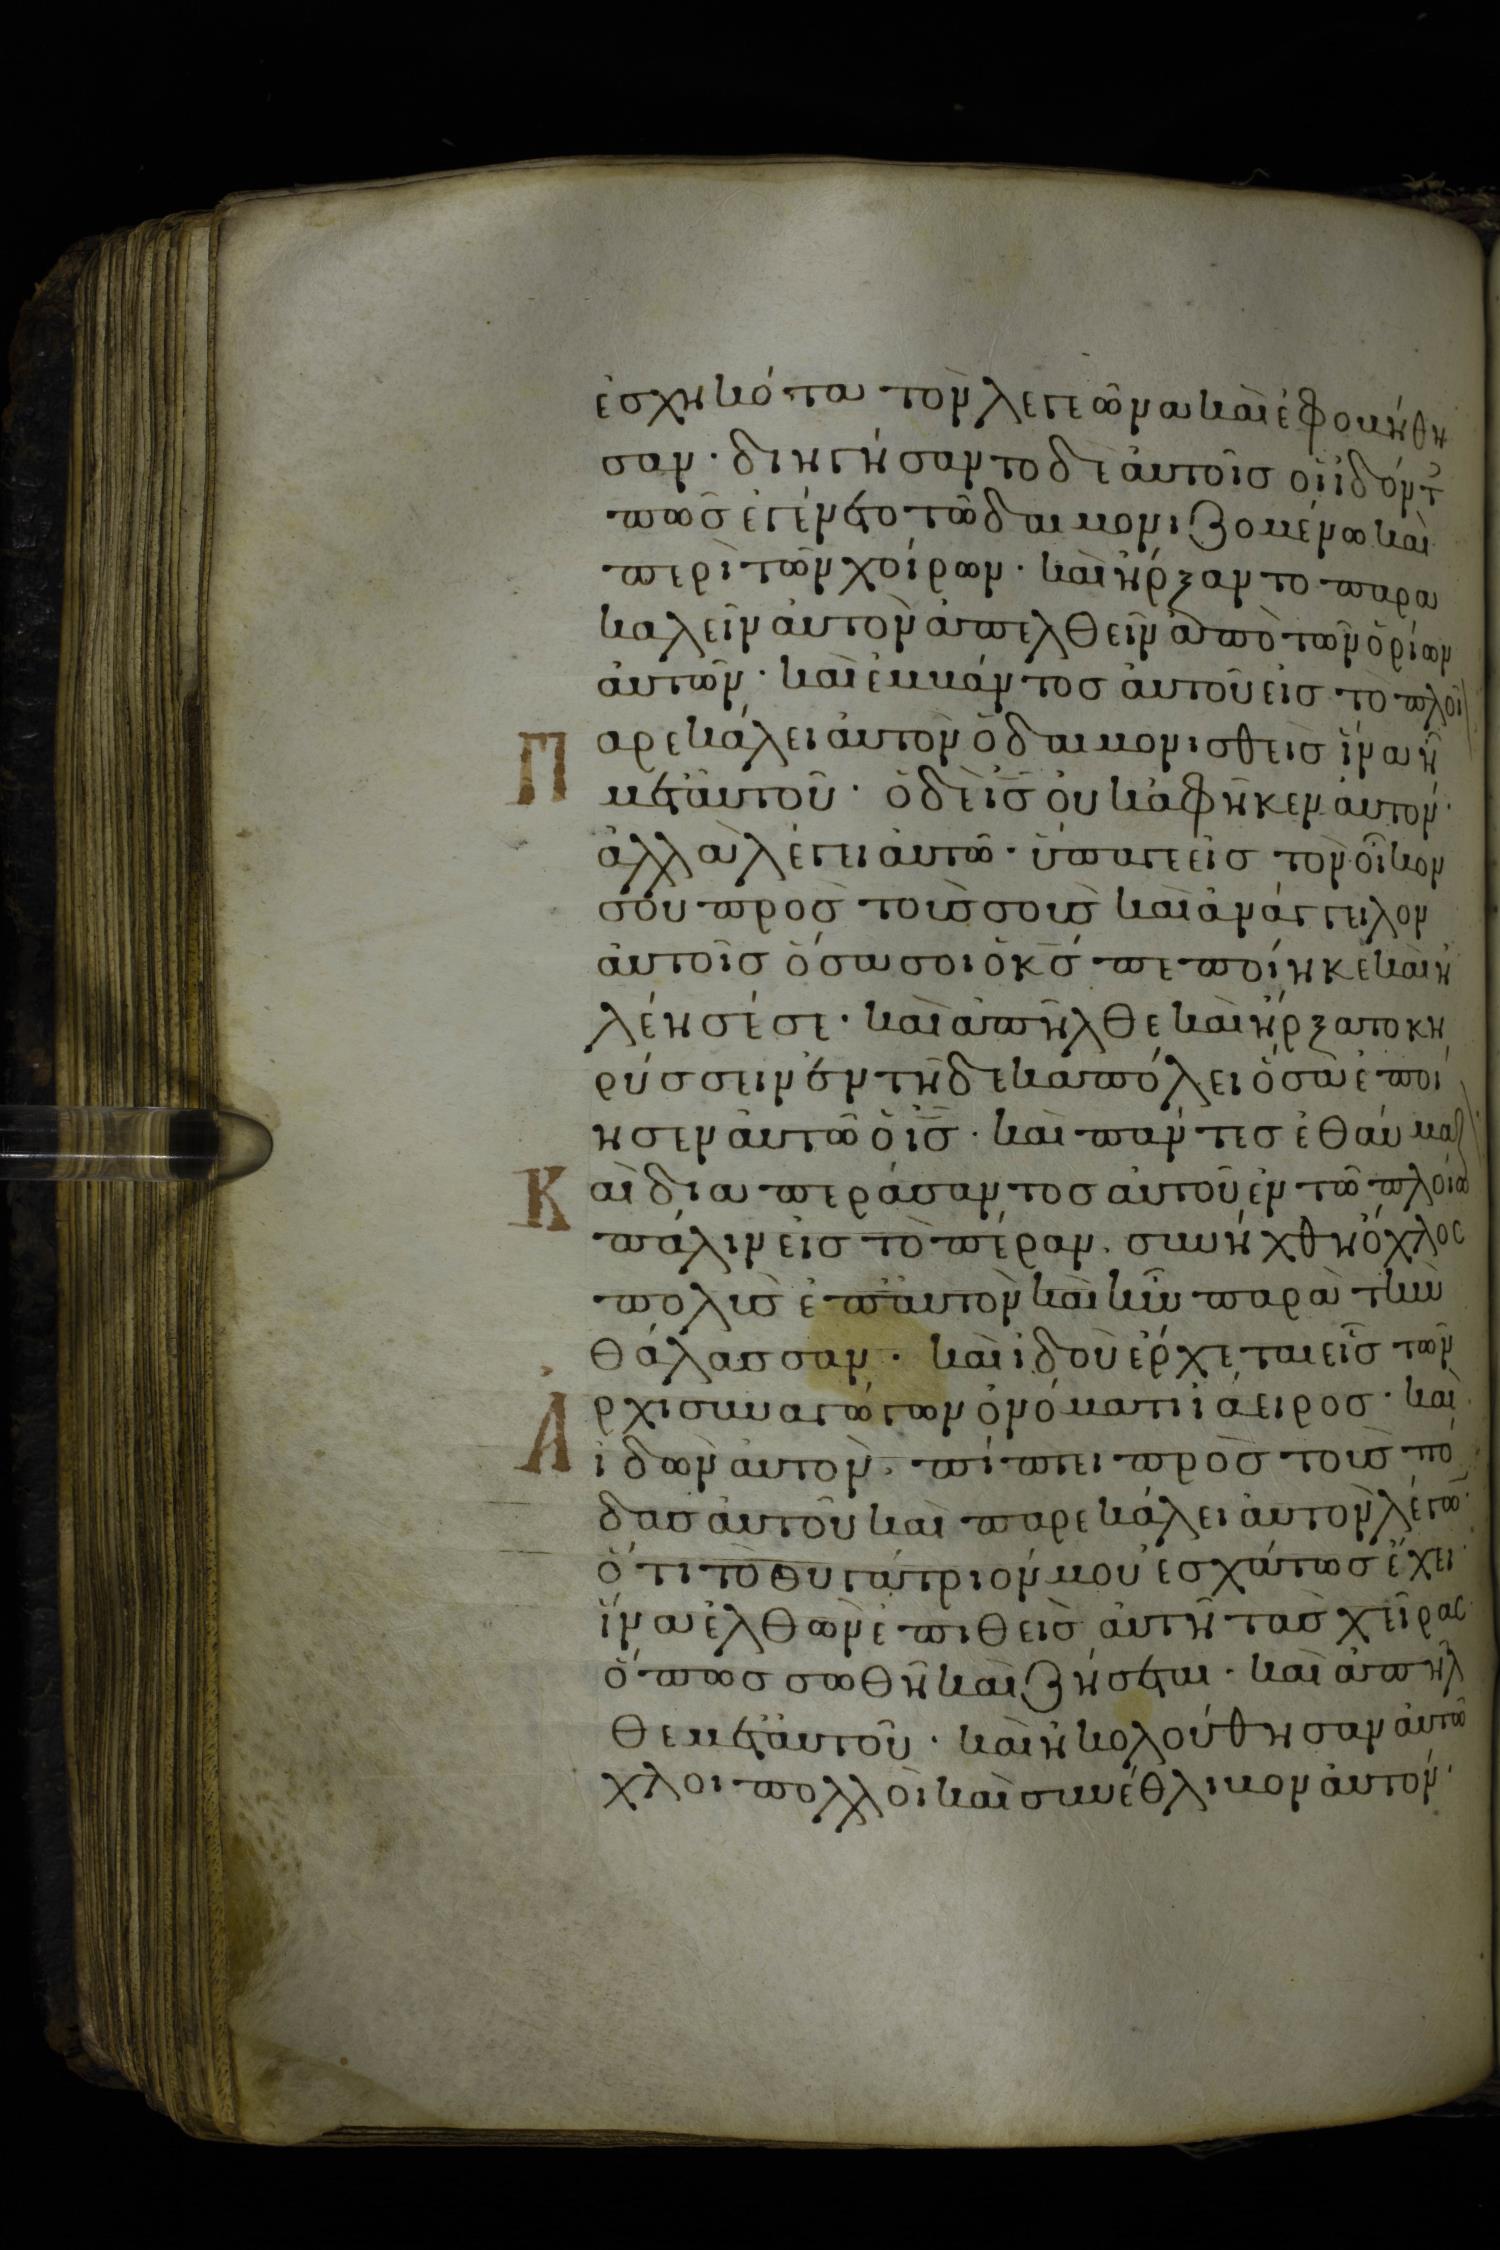 ἐσχηκότα τὸν λεγεῶνα καὶ ἐφοβήθη
σαν · διηγήσαντο δὲ αὐτοῖσ οἱ ἰδόντ
πῶσ ἐγένετο τῶ δαιμονιζομένω καὶ
περὶ τῶν χοίρων · καὶ ἤρξαντο παρα
καλεῖν αὐτὸν ἀπελθεῖν ἀπὸ τῶν ὁρίων
αὐτῶν · καὶ ἐμβάντοσ αὐτοῦ εἰσ τὸ πλοῖ
Παρεκάλει αὐτὸν ὁ δαιμονισθεὶσ ἵνα ἦ
μετ᾽ αὐτοῦ · ὁ δὲ ι̅σ̅ οὐκ ἀφῆκεν αὐτόν ·
ἀλλὰ λέγει αὐτῶ · ὕπαγε εἰσ τὸν οἶκον
σου πρὸσ τοὺσ σοὺσ καὶ ἀνάγγειλον
αὐτοῖσ ὅσα σοι ὁ κ̅σ̅ πεποίηκε καὶ ἠ
λέησέ σε · καὶ ἀπῆλθε καὶ ἤρξατο κη
ρύσσειν ἐν τῆ δεκαπόλει ὅσα ἐποί
ησεν αὐτῶ ὁ ι̅σ̅ · καὶ πάντεσ ἐθαύμαζ
Καὶ διαπεράσαντοσ αὐτοῦ ἐν τῶ πλοίω
πάλιν εἰσ τὸ πέραν · συνήχθη ὄχλοσ
πολὺσ ἐπ᾽ αὐτὸν καὶ ἦν παρὰ τὴν
θάλασσαν · καὶ ἰδοὺ ἔρχεται εἷσ τῶν
Ἀρχισυναγώγων ὀνόματι ἰάειροσ · καὶ
ἰδὼν αὐτὸν · πίπτει πρὸσ τοὺσ πό
δασ αὐτοῦ καὶ παρεκάλει αὐτὸν λέγω
ὅτι τὸ θυγάτριόν μου ἐσχάτωσ ἔχει ·
ἵνα ἐλθὼν ἐπιθεὶσ αὐτῆ τὰσ χεῖρασ
ὅπωσ σωθῆ καὶ ζήσεται · καὶ ἀπῆλ
θε μετ᾽ αὐτοῦ · καὶ ἠκολούθησαν αὐτῶ
χλοι πολλοὶ καὶ συνέθλιβον αὐτόν ·